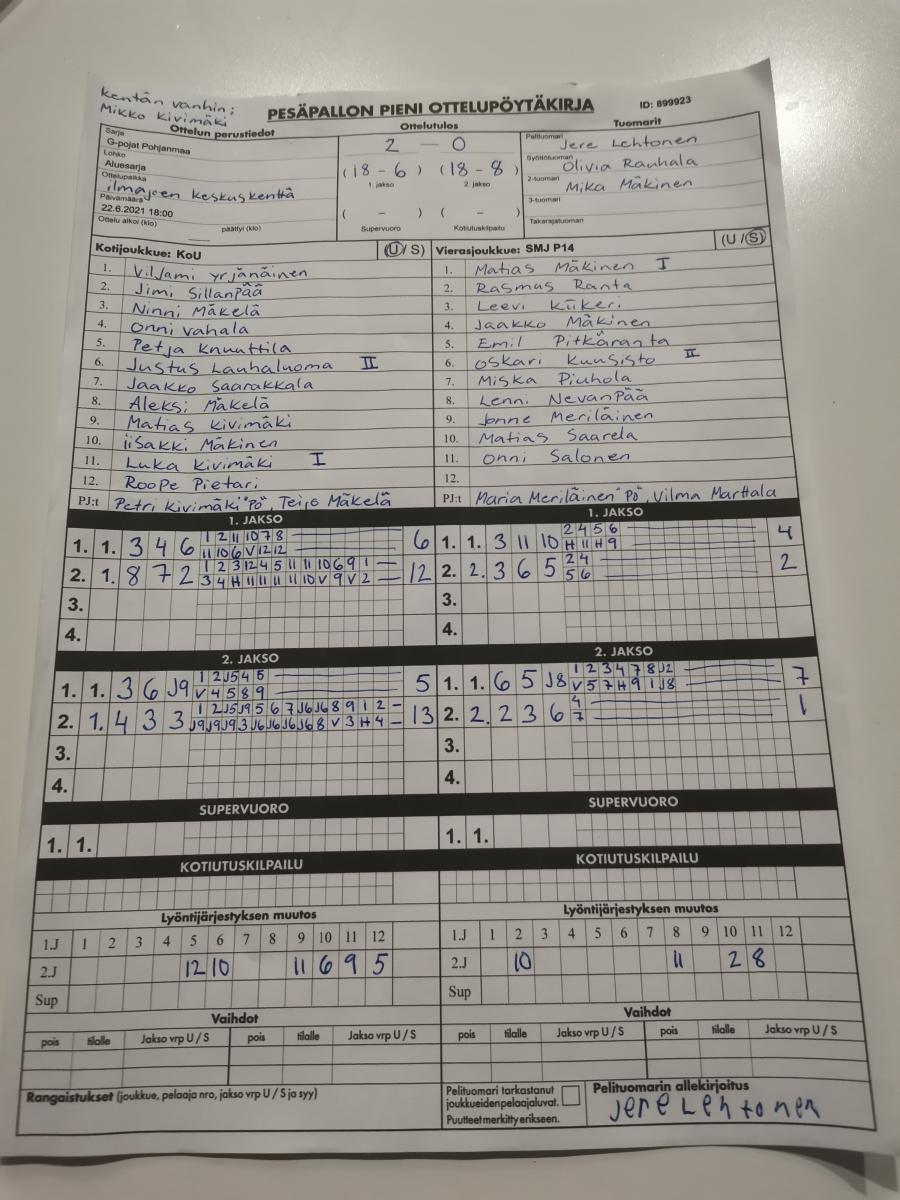 Kentän vanhin:
Mikko Kivimäki
PESÄPALLON PIENI OTTELUPÖYTÄKIRJA
ID: 899923
Ottelun perustiedot
Ottelutulos
Tuomarit
Sarja
G-pojat Pohjanmaa
Lohko
Aluesarja
Ottelupaikka
ilmajoen keskuskenttä
Päivämäärä
22.6.2021 18:00
Ottelu alkoi (klo) päättyi (klo)
2 – 0
(18 - 6) (18 - 8)
1. jakso 2. jakso
( - ) ( - )
Supervuoro Kotiutuskilpailu
Pelituomari Jere Lehtonen
Syöttötuomari Olivia Rauhala
2-tuomari Mika Mäkinen
3-tuomari
Takarajatuomari
Kotijoukkue: KoU (U/S)
1. Viljami yrjänäinen
2. Jimi Sillanpää
3. Ninni Mäkelä
4. Onni vahala
5. Petja Knuuttila
6. Justus Lauhaluoma II
7. Jaakko Saarakkala
8. Aleksi Mäkelä
9. Matias Kivimäki
10. iisakki Mäkinen
11. Luka Kivimäki I
12. Roope Pietari
PJ:t Petri Kivimäki "PÖ", Teijo Mäkelä
Vierasjoukkue: SMJ P14 (U/S)
1. Matias Mäkinen I
2. Rasmus Ranta
3. Leevi Kiikeri
4. Jaakko Mäkinen
5. Emil Pitkäranta
6. Oskari Kuusisto II
7. Miska Piuhola
8. Lenni Nevanpää
9. Jonne Meriläinen
10. Matias Saarela
11. Onni Salonen
12.
PJ:t Maria Meriläinen "PÖ", Vilma Marttala
1. JAKSO
1. 1. 3 4 6 1 2 11 10 7 8 6
11 10 6 V 12 12
2. 1. 8 7 2 1 2 3 12 4 5 11 11 10 6 9 1 – 12
3 4 H 11 11 11 11 10 V 9 V 2 –
3.
4.
1. JAKSO
1. 1. 3 11 10 2 4 5 6 4
H 11 H 9
2. 2. 3 6 5 2 4 2
5 6
3.
4.
2. JAKSO
1. 1. 3 6 J9 1 2 J5 4 5 5
V 4 5 8 9
2. 1. 4 3 3 1 2 J5 J9 5 6 7 J6 J6 8 9 1 2 – 13
J9 J9 J9 3 J6 J6 J6 J6 8 V 3 H 4 –
3.
4.
2. JAKSO
1. 1. 6 5 J8 1 2 3 4 7 8 J2 7
V 5 7 H 9 1 J8
2. 2. 2 3 6 4 1
7
3.
4.
SUPERVUORO
1. 1.
SUPERVUORO
1. 1.
KOTIUTUSKILPAILU
KOTIUTUSKILPAILU
Lyöntijärjestyksen muutos
1.J 1 2 3 4 5 6 7 8 9 10 11 12
2.J 12 10 11 6 9 5
Sup
Lyöntijärjestyksen muutos
1.J 1 2 3 4 5 6 7 8 9 10 11 12
2.J 10 11 2 8
Sup
Vaihdot
pois tilalle Jakso vrp U / S pois tilalle Jakso vrp U / S
Vaihdot
pois tilalle Jakso vrp U / S pois tilalle Jakso vrp U / S
Rangaistukset (joukkue, pelaaja nro, jakso vrp U / S ja syy)
Pelituomari tarkastanut
joukkueiden pelaajaluvat.
Puutteet merkitty erikseen.
Pelituomarin allekirjoitus
Jere Lehtonen